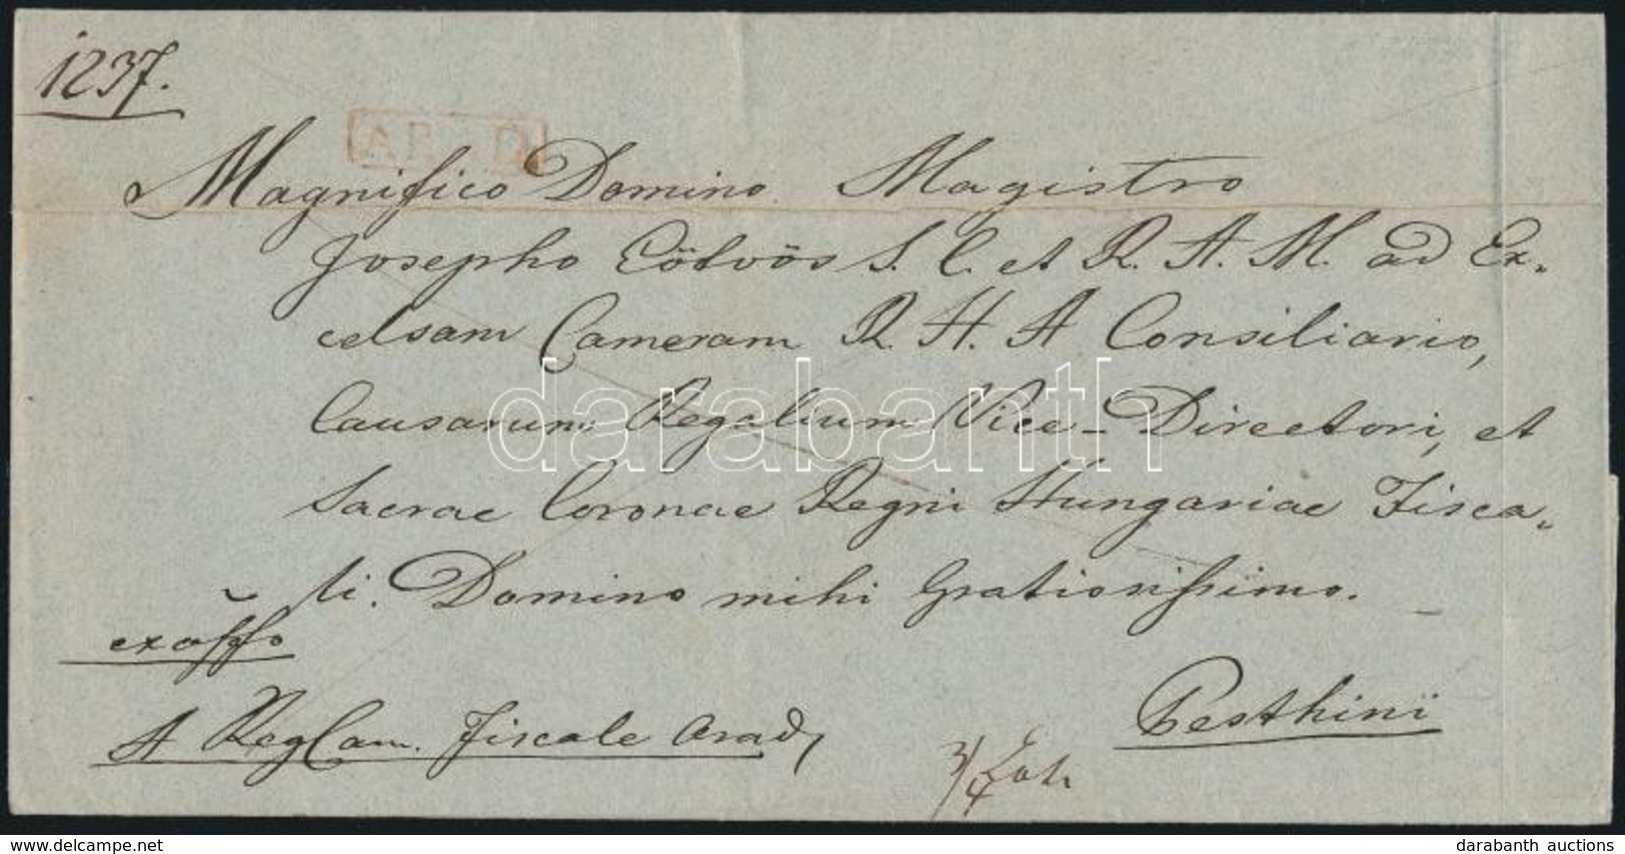 1237.
ARAD
Magnifico Domino Magistro
Josepho Eötvös S. C. et R. A. M. ad Ex-
celsam Cameram R. H. A Consiliario,
Causarum Regalium Vice-Directori, et
Sacrae Coronae Regni Hungariae Fisca-
li. Domino mihi Gratiosissimo.
ex offo
A Reg Cam. Fiscale Arad,
Pesthini
3/4
darabanth
delcampe.net
darabanth auctions